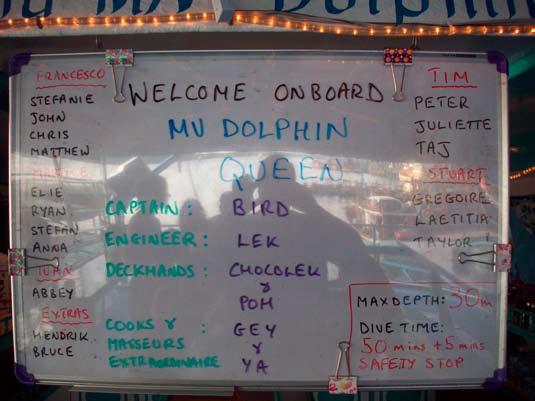 MV DOLPHIN
FRANCESCO
STEFANIE
JOHN
CHRIS
MATTHEW
ELIE
RYAN
STEFAN
ANNA
IVAN
ABBEY
EXTRAS
HENDRIK
BRUCE
WELCOME ONBOARD
MV DOLPHIN
QUEEN
CAPTAIN: BIRD
ENGINEER: LEK
DECKHANDS: CHOCOLEK
&
POM
COOKS & : GEY
MASSEURS &
EXTRAORDINAIRE YA
TIM
PETER
JULIETTE
TAJ
STUART
GREGOIRE
LAETITIA
TAYLOR
MAX DEPTH: 30m
DIVE TIME:
50 mins + 5 mins
SAFETY STOP